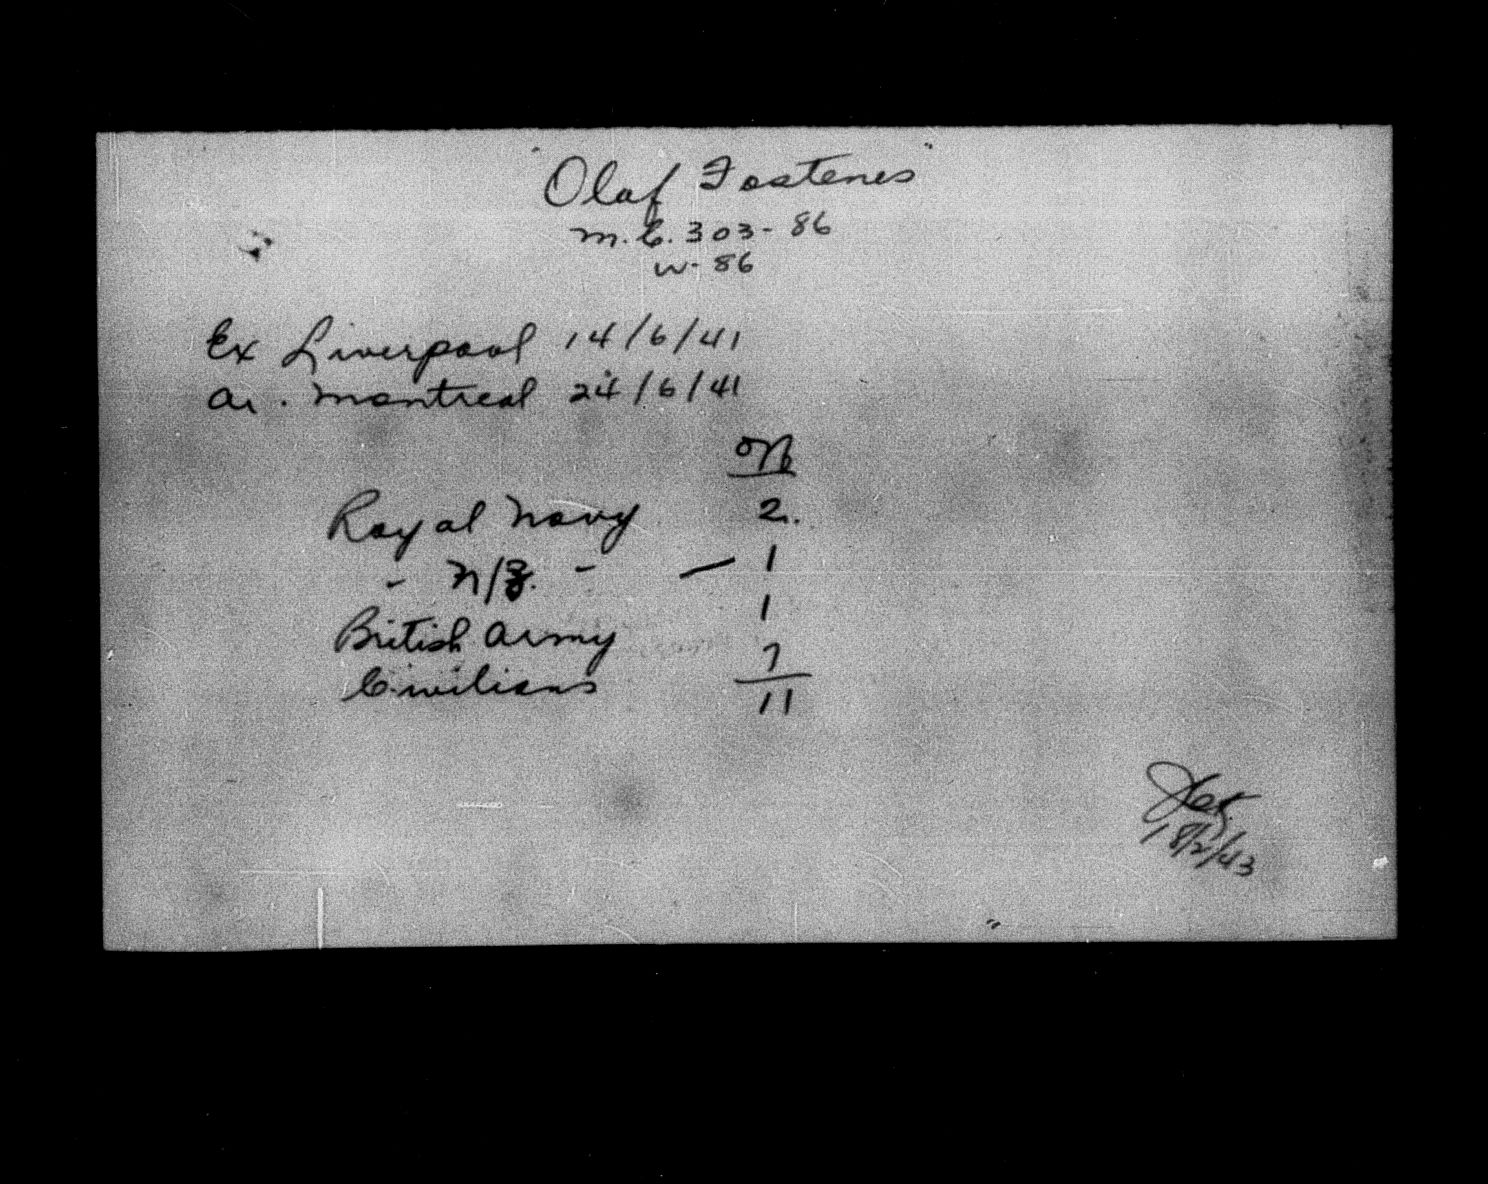 "Olaf Fostenes"
M.C. 303-86
W-86
Ex Liverpool 14/6/41
Ar. Montreal 24/6/41
Royal Navy 2.
- N/Z. - — 1
British Army 1
Civilians 7
11
18/2/43